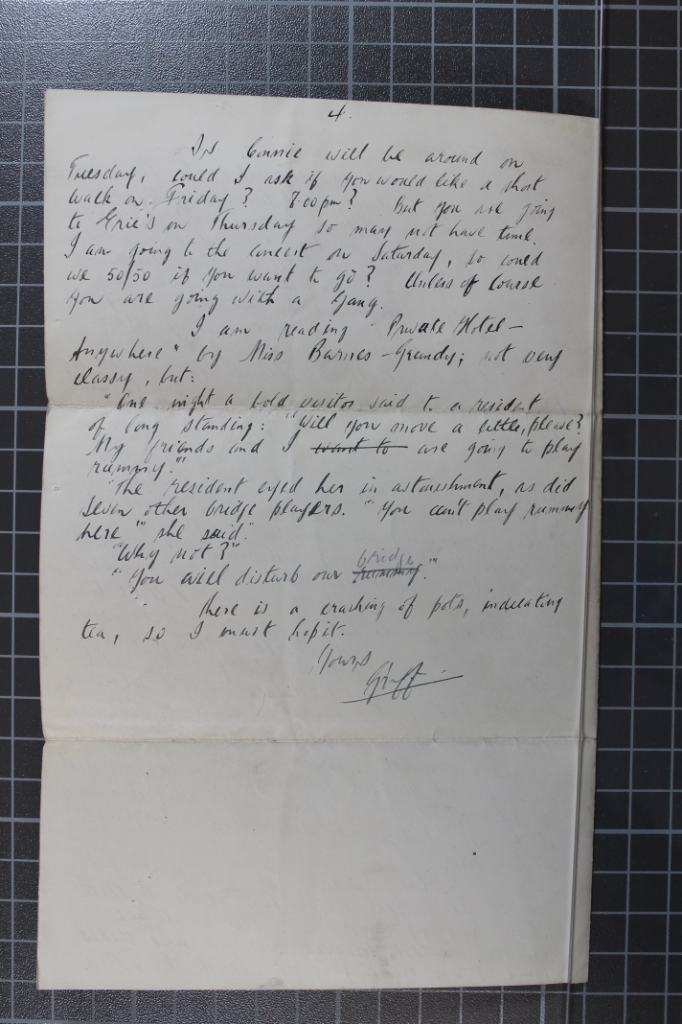 4.
As Connie will be around on
Tuesday, could I ask if you would like a short
walk on Friday? 8.00pm? But you are going
to Eric's on Thursday so may not have time.
I am going to the concert on Saturday, so could
we 50/50 if you want to go? Unless of course
you are going with a gang.
I am reading "Private Hotel –
Anywhere" by Miss Barnes-Grundy; not very
classy, but:
"One night a bold visitor said to a resident
of long standing: "Will you move a little, please?
My friends and I want to are going to play
rummy."
"The resident eyed her in astonishment, as did
seven other bridge players. "You can't play rummy
here" she said".
"Why not?"
"You will disturb our rummy bridge."
There is a crashing of pots, indicating
tea, so I must hop it.
Yours
Griff